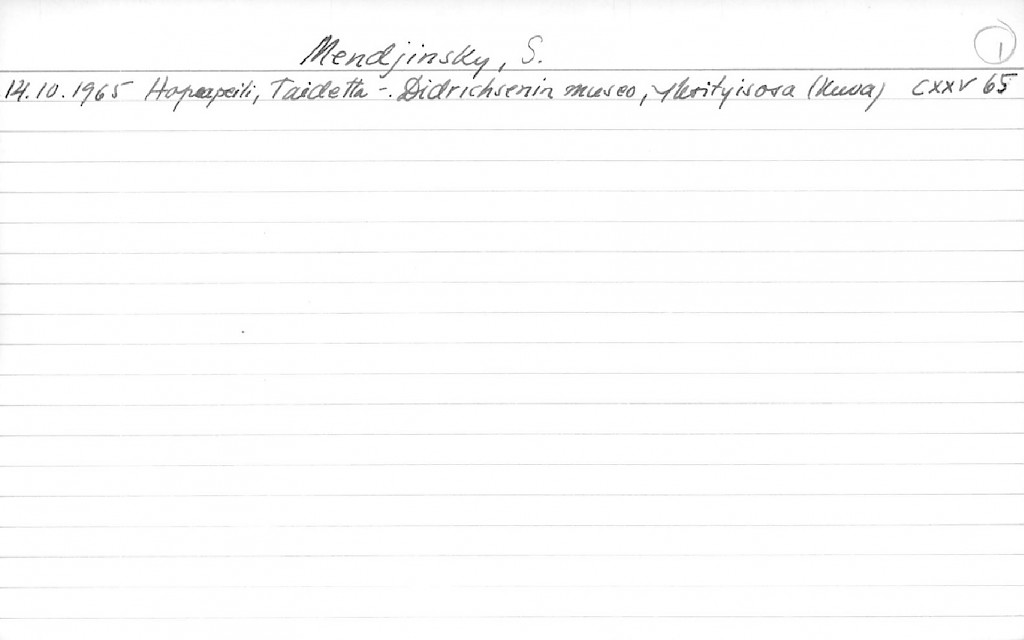 Mendjinsky, S. 1
14.10.1965 Hopeapeili, Taidetta -. Didrichsenin museo, (kuva) CXXV 65